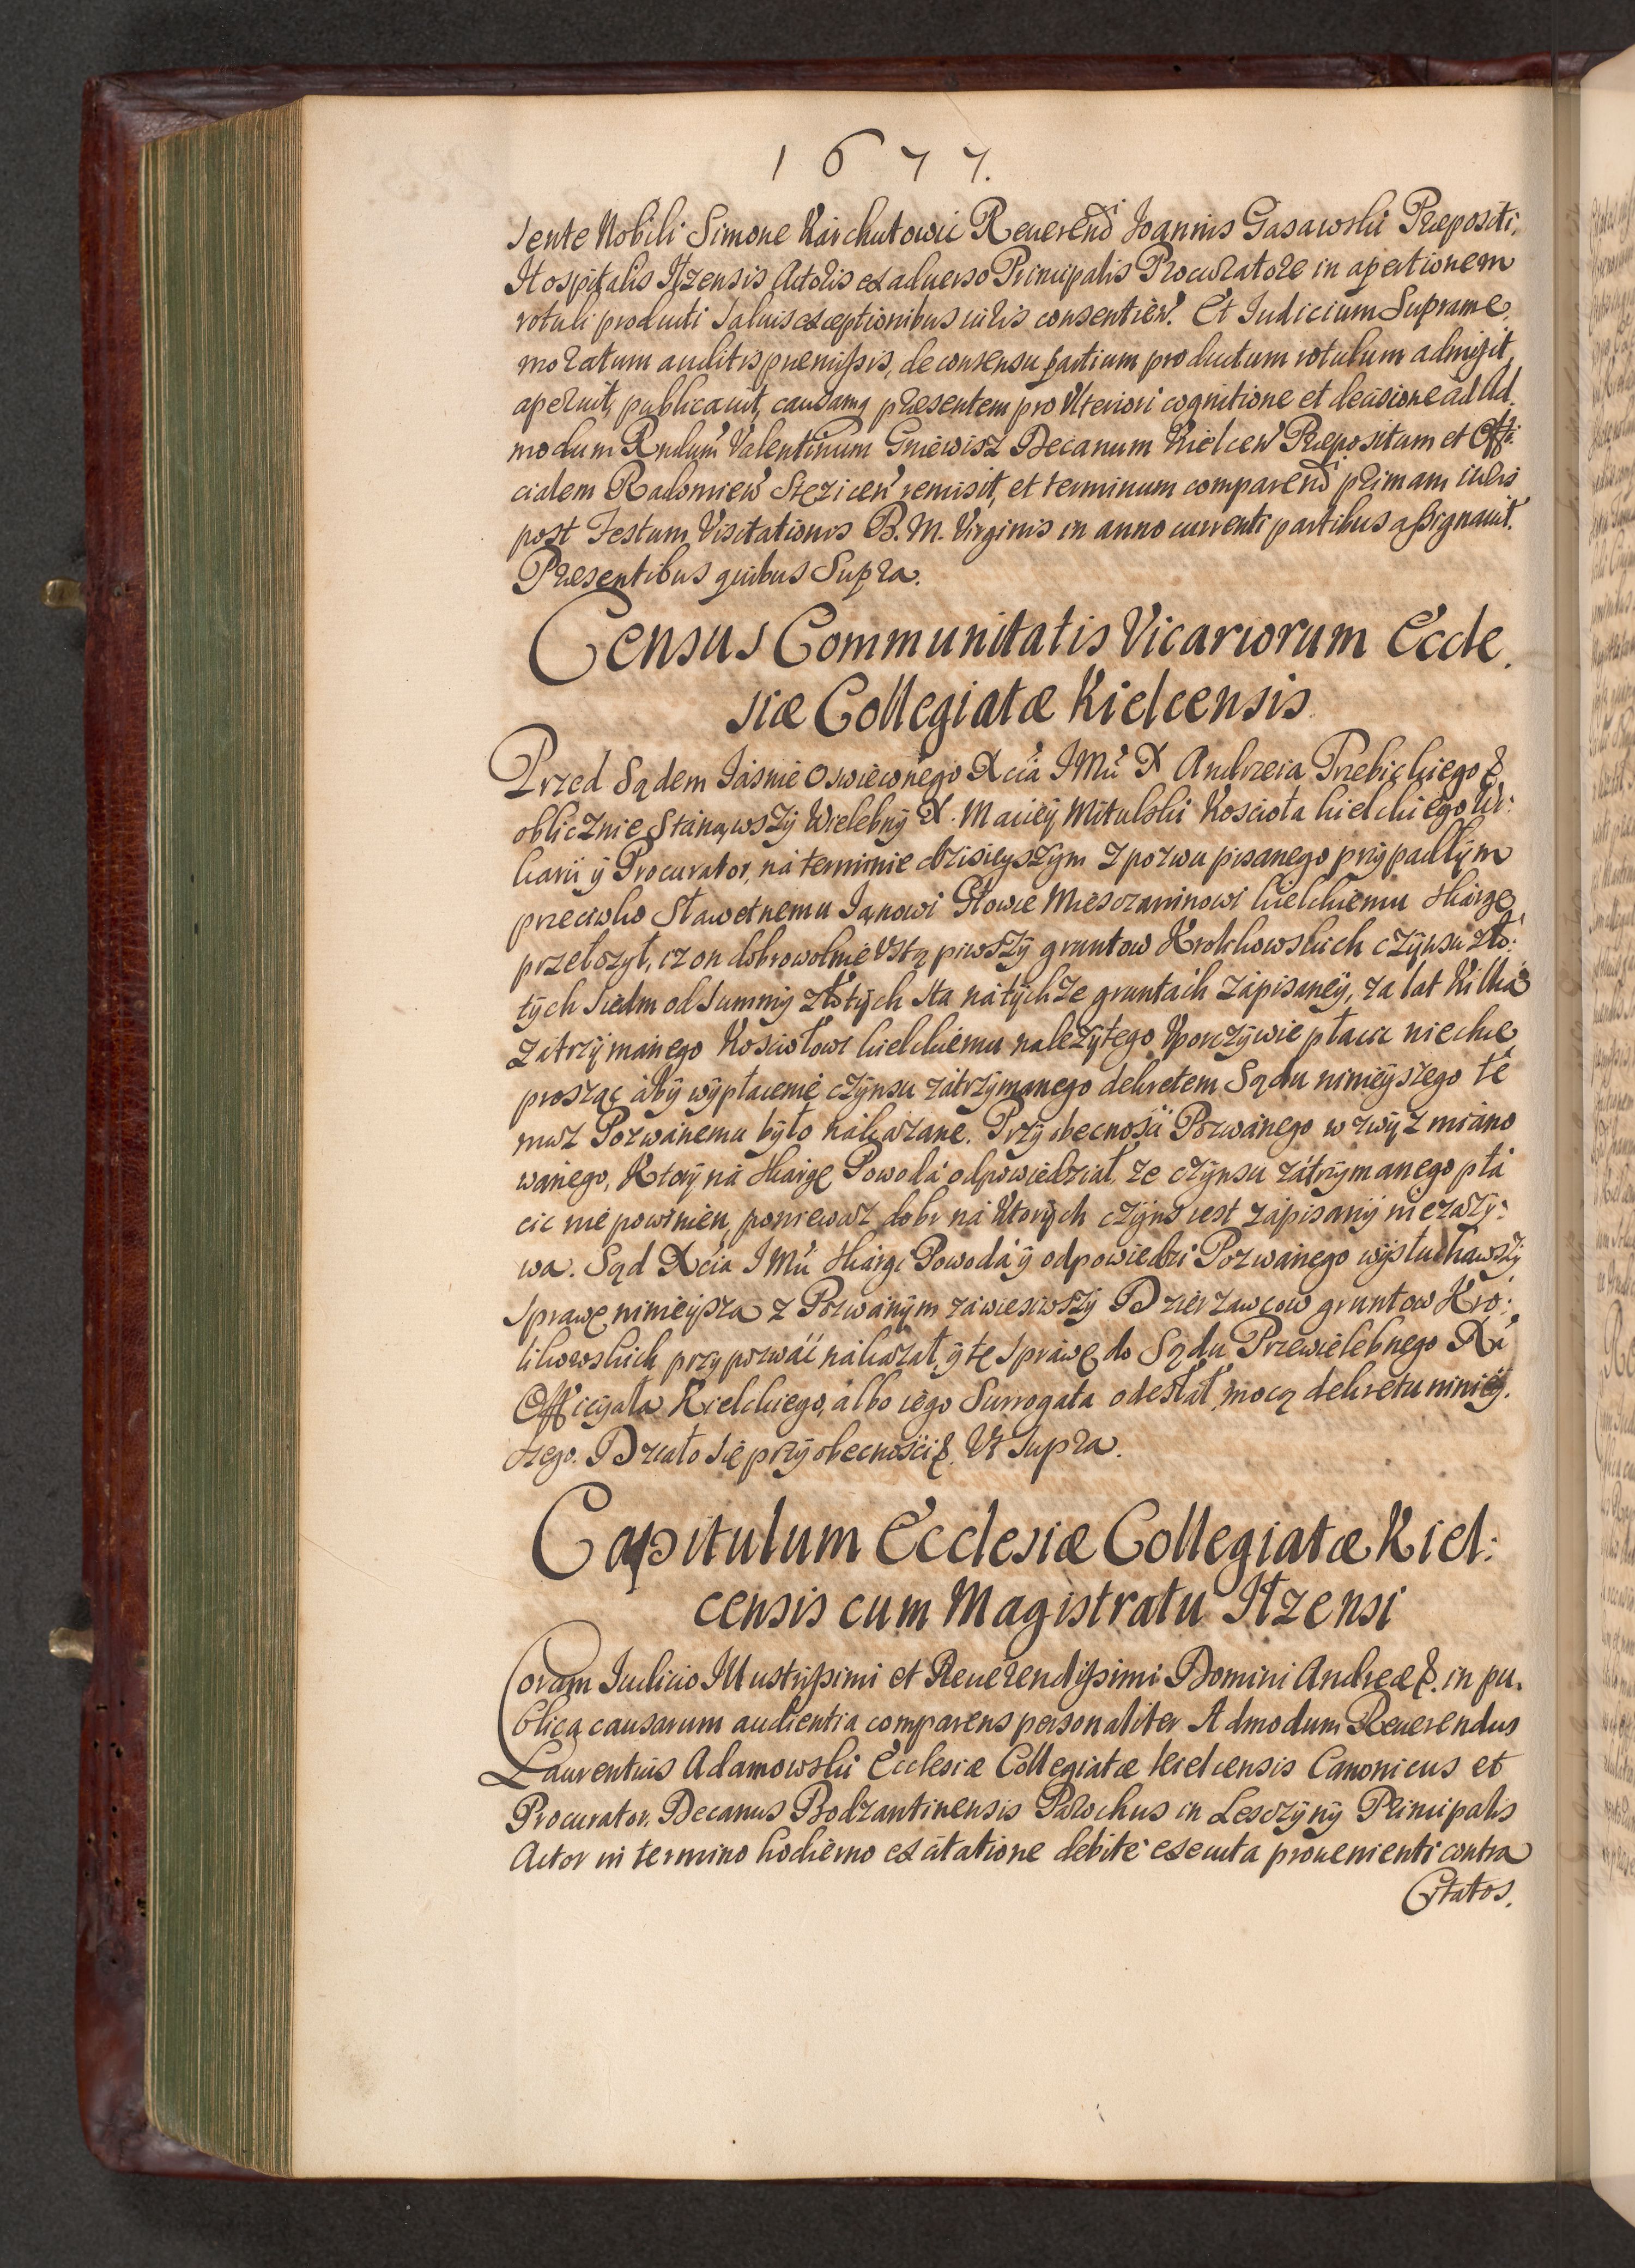 1677.
sente Nobili Simone Karchutowic Reuerend Joannis Gasawski Præpositi
Hospitalis Ilzensis Actoris ex aduerso Principalis Procuratore in apertionem
rotuli producti saluis exceptionibus iuris consentien. Et Iudicium Suprame
moratum auditis præmissis, de consensu partium productum rotulum admisit,
aperuit, publicauit, causamq presentem pro Vlteriori cognitione et decisione ad Ad
modum Rndum Valentinum Gniewisz Decanum Kielcen Præpositum et Offi
cialem Radomien Stęzicen remisit, et terminum comparend primam iuris
post Festum Visitationis B. M. Virginis in anno currenti partibus assignauit.
Præsentibus quibus Supra.
Census Communitatis Vicariorum Eccle.
siæ Collegiatæ Kielcensis
Przed Sądem Jásnie Oswieconego Xcia JMci X Andrzeia Trzebickiego &
oblicznie stanąwszy Wielebny X. Maciey Mitulski Koscioła kielckiego Wi:
karii y Procurator, ná terminie dzisieyszym z pozwu pisanego przypadłym
przeciwko Sławetnemu Janowi Głowie Miesczaninowi kielckiemu skárgę
przełozył, iz on dobrowolnie vstąpiwszy gruntow Krolikowskich czynsu zło:
tych siedm od summy złotych sta ná tychze gruntách zápisaney, za lat kilka
zátrzymanego Kosciołowi kielckiemu nalezytego vporczywie płacic niechce,
prosząc áby wypłacenie czynsu zátrzymanego dekretem Sądu ninieyszego te
muz Pozwánemu było nákazane. Przy obecnosci Pozwánego wzwyz miano
wánego, ktory ná skárgę Powodá odpowiedział, ze czynsu zátrzymanego płá
cic nie powinien, poniewaz dobr ná ktorych czyns iest zápisany niezazy:
wa. Sąd Xcia JMci skárgi Powodá y odpowiedzi Pozwánego wysłuchawszy
sprawę ninieysza z Pozwánym záwiesiwszy Dzierzawcow gruntow Kro:
likowskich przypozwáć nákazał, y tę sprawę do Sądu Przewielebnego Xa
Officyała Kielckiego, albo iego Surrogata odesłał mocą dekretu niniey.
szego. Działo się przy obecności &. Vt supra.
Capitulum Ecclesiæ Collegiatæ Kiel:
censis cum Magistratu Ilzensi
Coram Iudicio Illustrissimi et Reuerendissimi Domini Andreæ &. in pu.
blica causarum audientia comparens personaliter Admodum Reuerendus
Laurentius Adamowski Ecclesiæ Collegiatæ Kielcensis Canonicus et
Procurator, Decanus Bodzantinensis Parochus in Lesczyny Principalis
Actor in termino hodierno ex citatione debite executa prouenienti contra
Citatos.